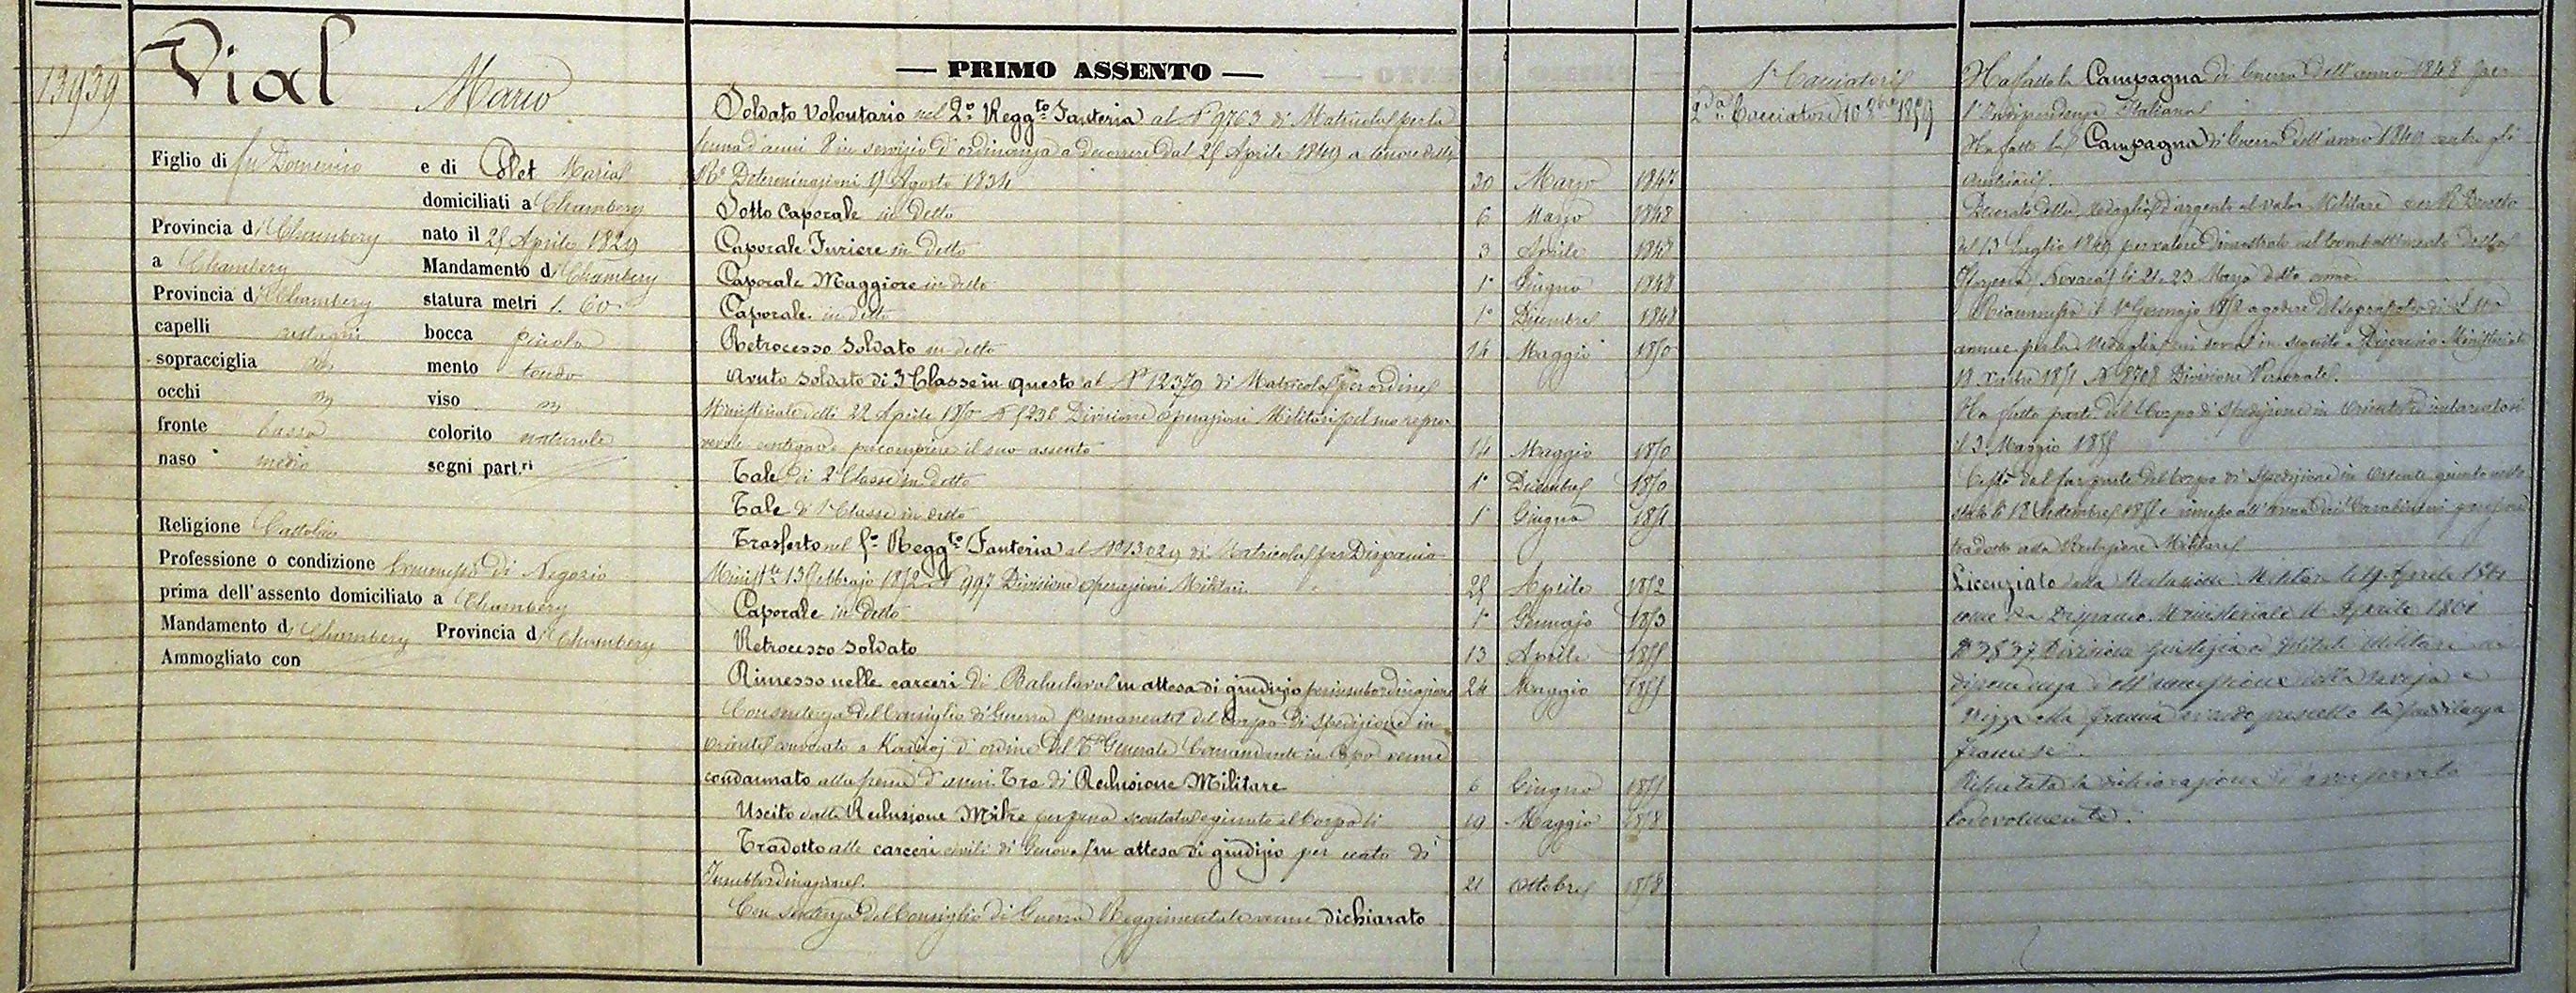 13939
Vial Mario
Figlio di fu Domenico e di Olet Maria
domiciliati a Chambery
Provincia di Chambery nato il 25 Aprile 1829
a Chambery Mandamento di Chambery
Provincia di Chambery statura metri 1. 60
capelli castagni bocca piccola
sopracciglia id mento tondo
occhi id viso id
fronte bassa colorito naturale
naso medio segni part.ri
Religione Cattolica
Professione o condizione Commesso di Negozio
prima dell'assento domiciliato a Chambery
Mandamento di Chambery Provincia di Chambery
Ammogliato con
— PRIMO ASSENTO —
Soldato Volontario nel 2° Regg.to Fanteria al N° 9763 di Matricola per la
ferma d'anni 8 in servizio d'ordinanza a decorrere dal 25 Aprile 1849 a tenore delle
R.e Determinazioni 9 Agosto 1834 30 Marzo 1847
Sotto Caporale in detto 6 Marzo 1848
Caporale Furiere in detto 3 Aprile 1848
Caporale Maggiore in detto 1° Giugno 1848
Caporale in detto 1° Dicembre 1848
Retrocesso Soldato in detto 14 Maggio 1850
Avuto Soldato di 3 Classe in questo al N° 12379 di Matricola per ordine
Ministeriale delli 22 Aprile 1850 N° 5236 Divisione Operazioni Militari pel suo repro-
vevole contegno per compiere il suo assento 14 Maggio 1850
Tale di 2 Classe in detto 1° Dicembre 1850
Tale di 1 Classe in detto 1° Giugno 1851
Trasferto nel 5° Regg.to Fanteria al N° 13029 di Matricola per Dispaccio
Minist.le 13 Febbrajo 1852 N° 997 Divisione Operazioni Militari 25 Aprile 1852
Caporale in detto 1° Gennajo 1853
Retrocesso Soldato 13 Aprile 1855
Rimesso nelle carceri di Balaclava in attesa di giudizio per insubordinazione 24 Maggio 1855
Con sentenza del Consiglio di Guerra permanente del Corpo di Spedizione in
Oriente convocato a Kadikoj d'ordine del T.e Generale Comandante in Capo venne
condannato alla pena d'anni Tre di Reclusione Militare 6 Giugno 1855
Uscito dalla Reclusione Mil.re per pena scontata e giunto al Corpo li 19 Maggio 1858
Tradotto alle carceri civili di Genova in attesa di giudizio per reato di
Insubbordinazione. 21 Ottobre 1858
Con sentenza del Consiglio di Guerra Reggimentale venne dichiarato
1° Cacciatori
2da Cacciatori 10 8bre 1859
Ha fatto la Campagna di Guerra dell'anno 1848 per
l'Indipendenza Italiana
Ha fatto la Campagna di Guerra dell'anno 1849 contro gli
Austriaci.
Decorato della Medaglia d'argento al Valor Militare con R. Decreto
del 13 Luglio 1849 per valore dimostrato nel combattimento della
Sforzesca, Novara li 21 e 23 Marzo detto anno
Riammesso il 1° Gennajo 1852 a godere del soprasoldo di L. 100
annue per la Medaglia in seguito a Dispaccio Ministeriale
18 Xmbre 1851 N° 8708 Divisione Personale.
Ha fatto parte del Corpo di Spedizione in Oriente ed imbarcatosi
il 3 Maggio 1855
Cessò dal far parte del Corpo di Spedizione in Oriente giunto nello
stato li 12 Settembre 1855 e rimesso all'arma dei Carabinieri per essere
tradotto alla Reclusione Militare
Licenziato dalla Reclusione Militare li 19 Aprile 1861
come da Dispaccio Ministeriale 11 Aprile 1861
N° 3537 Divisione Giustizia ed Istituti Militari in
dipendenza dell'annessione della Savoja e
Nizza alla Francia avendo prescelto la sudditanza
francese.
Rifiutata la dichiarazione d'aver servito
lodevolmente.